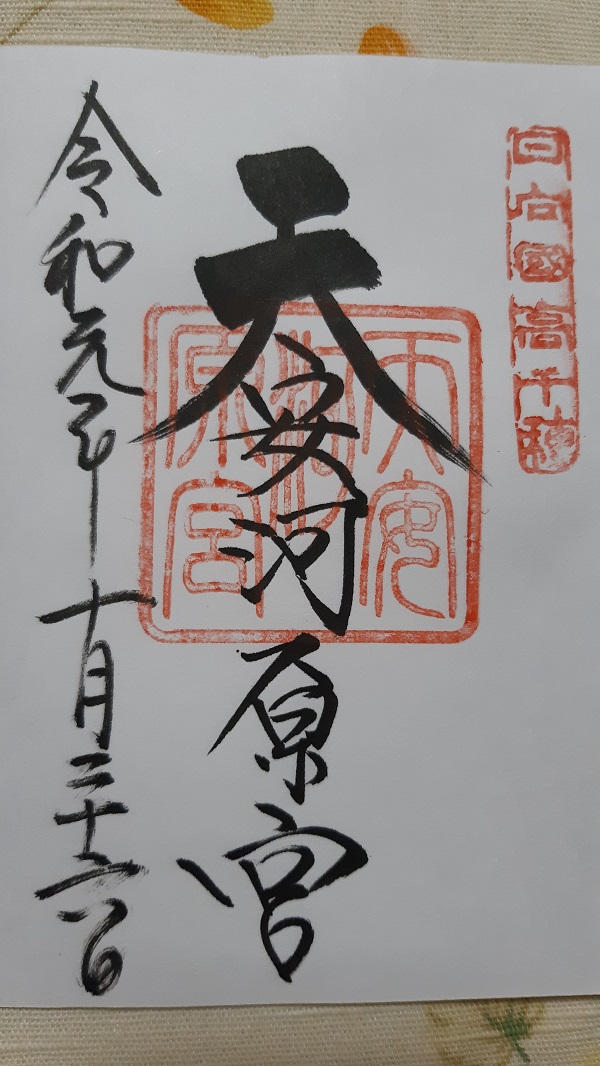 日向國高千穂
天安河原宮
天安河原宮
令和元年十月二十六日